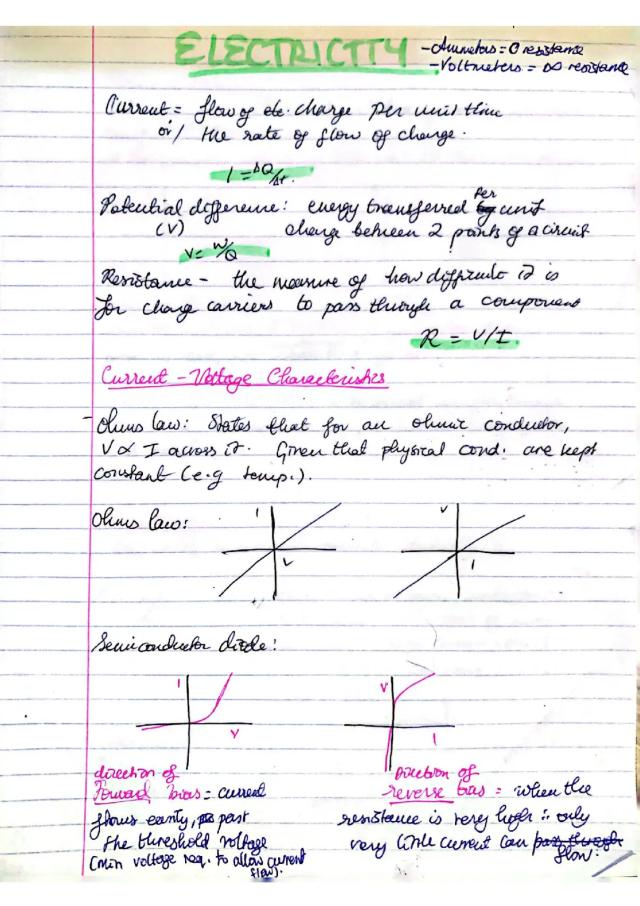 ELECTRICTTY
-Ammeters = 0 resistance
-Voltmeters = ∞ resistance
Current = flow of ele. charge per unit time
or/ the rate of flow of charge.
I = ΔQ/Δt.
Potential difference: energy transferred per unit
(V) charge between 2 points of a circuit
V = W/Q
Resistance - the measure of how difficult it is
for charge carriers to pass through a component
R = V/I.
Current - Voltage Characteristics
- Ohms law: States that for an ohmic conductor,
V ∝ I across it. Given that physical cond. are kept
constant (e.g temp.).
Ohms law:
I
V
V
I
Semiconductor diode:
I
V
V
I
direction of
Forward bias = current
flows easily, past
the threshold voltage
(min voltage req. to allow current
flow).
Direction of
reverse bias = when the
resistance is very high ∴ only
very little current can pass through
flow.